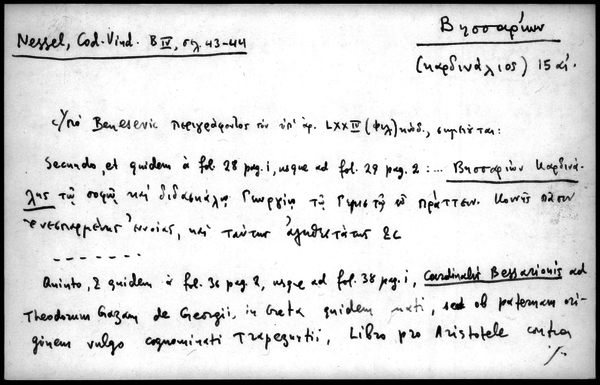 Nessel, Cod. Vind. B IV, σελ. 43-44
Βησσαρίων
(καρδινάλιος) 15 αἰ.
Ὑπὸ περιγράφοντος τὸν ὑπ' ἀρ. LXXIV (φιλ) κώδ., σημειοῦται:
Secundo, et quidem à fol. 28 pag. 1, usque ad fol. 29 pag. 2: ... Βησσαρίων Καρδινά-
λης τῷ σοφῷ καὶ διδασκάλῳ Γεωργίῳ τῷ Γεμιστῷ εὖ πράττειν. Κοινῆς πᾶσιν
ἐνεσπαρμένης ἐννοίας, καὶ ταύτης ἀληθεστάτης &c
- - - - - - -
Quinto, & quidem à fol. 36 pag. 2, usque ad fol. 38 pag. 1, Cardinalis Bessarionis ad
Theodorum Gazam de Georgii, in Creta quidem nati, sed ob paternam ori-
ginem vulgo cognominati Trapezuntii, Libro pro Aristotele contra